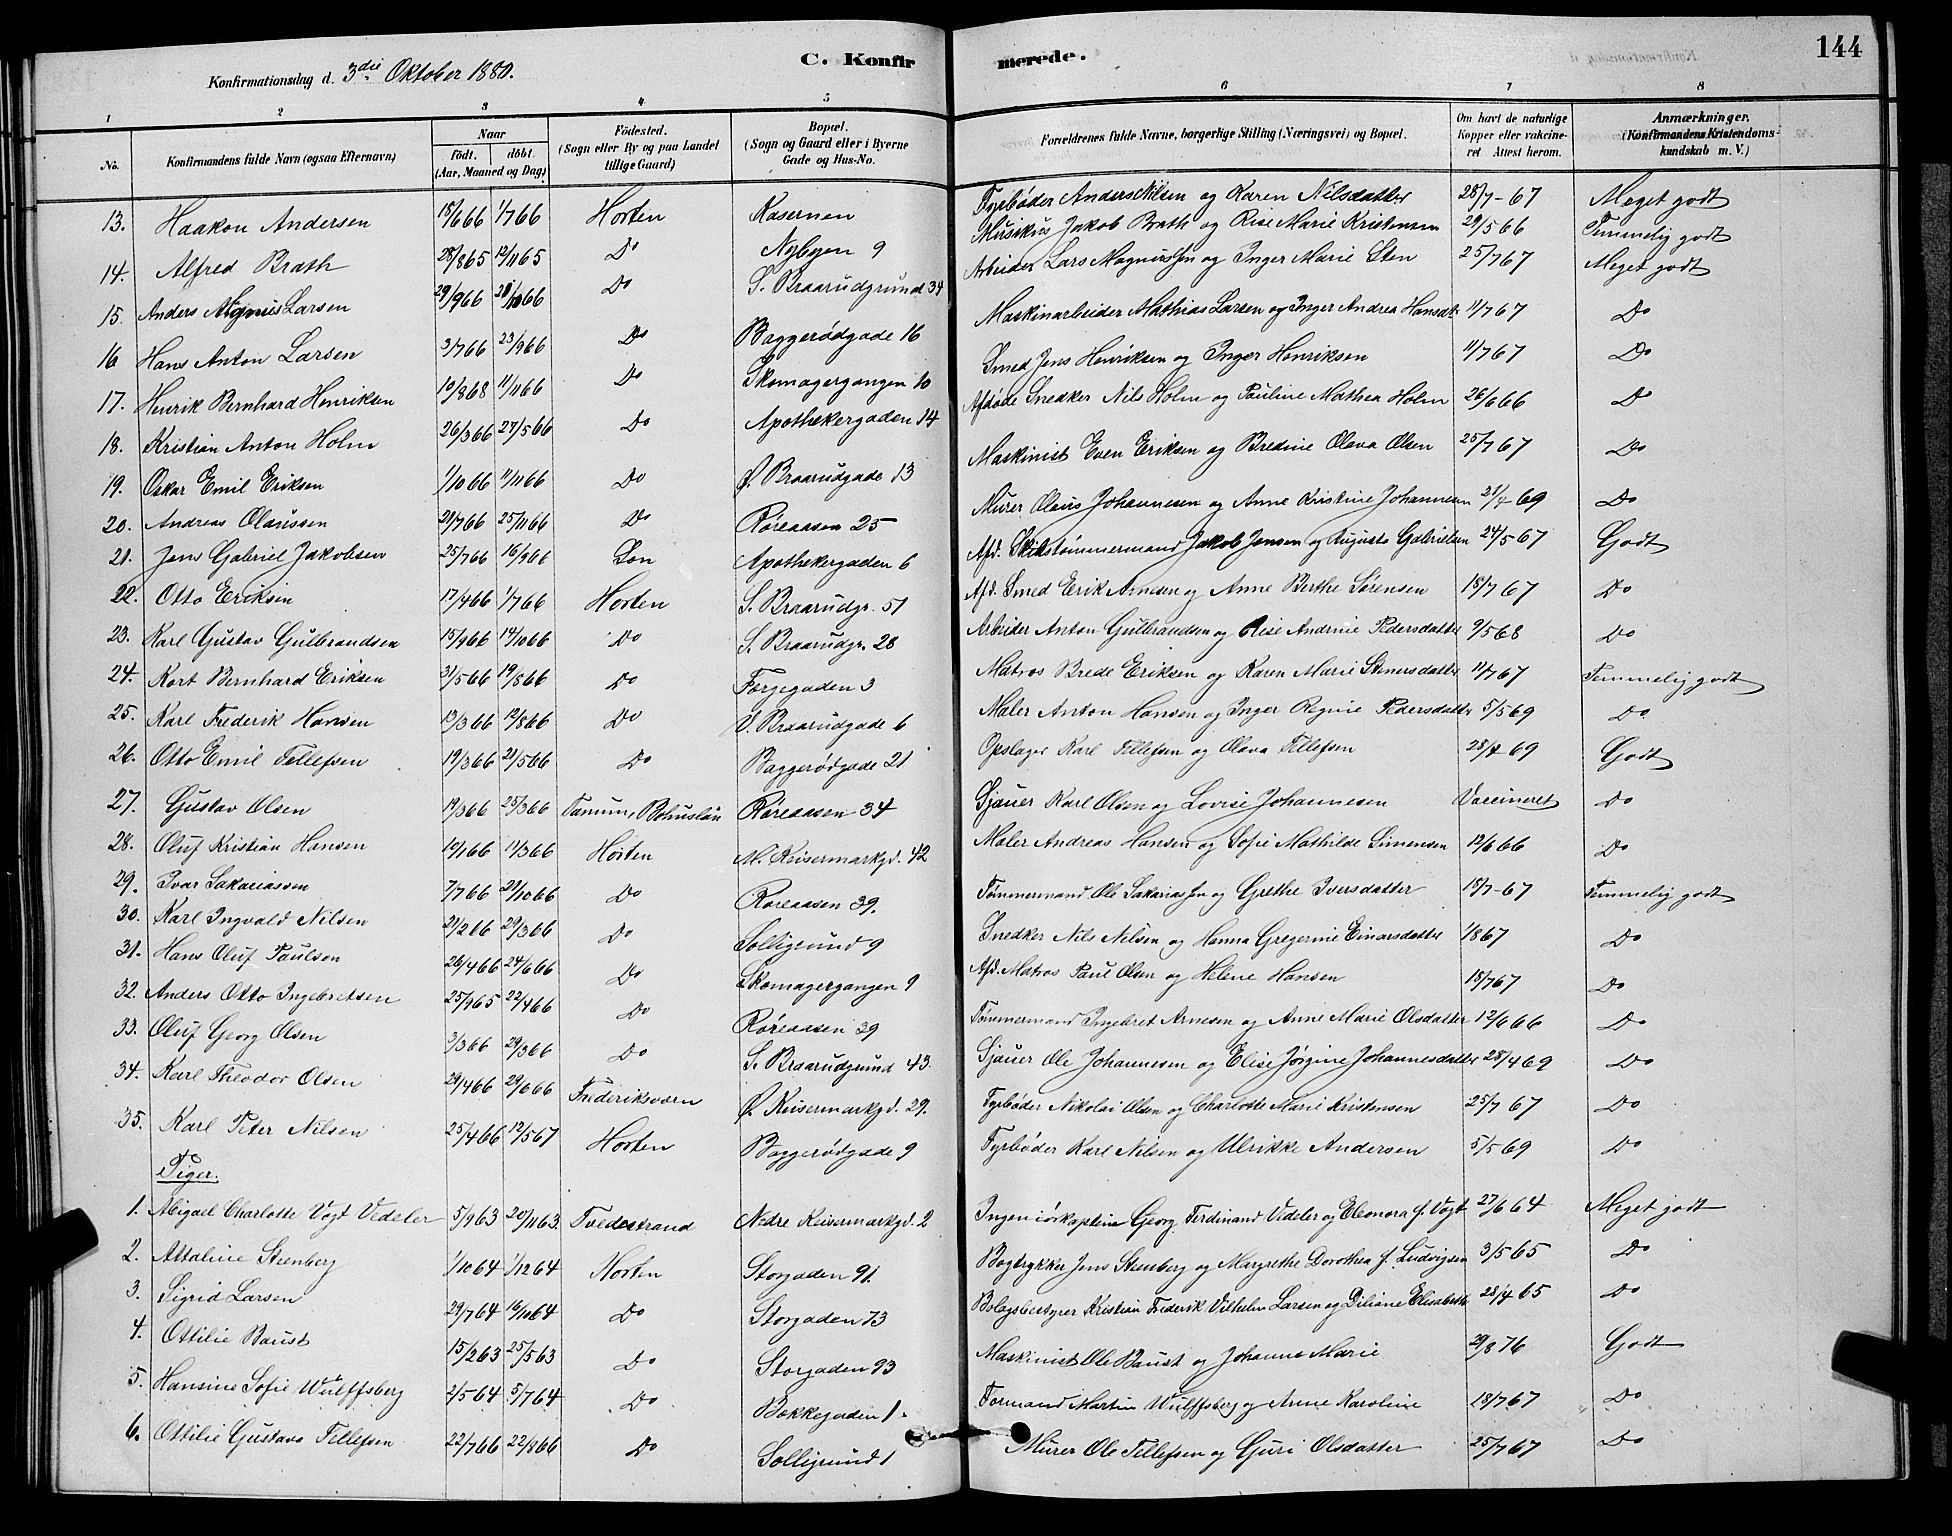 144
Konfirmationsdag d. 3die Oktober 1880.
C. Konfirmerede.
1 2 3 4 5 6 7 8
No. | Konfirmandens fulde Navn (ogsaa Efternavn) | Naar födt. döbt. (Aar, Maaned og Dag) | Födested. (Sogn eller By og paa Landet tillige Gaard) | Bopæl. (Sogn og Gaard eller i Byerne Gade og Hus-No. | Forældrenes fulde Navne, borgerlige Stilling (Næringsvei) og Bopæl. | Om havt de naturlige Kopper eller vakcineret Attest herom. | Anmærkninger. (Konfirmandens Kristendomskundskab m. V.)
13. Haakon Andersen 18/6 66 1/7 66 Horten Kasernen Fyrbøder Anders Nilsen og Karen Nilsdatter 28/7-67 Meget godt
14. Alfred Brath 28/8 65 12/11 65 Do Nybyen 9 Musikus Jakob Brath og Rise Marie Kristensen 29/5 66 Temmelig godt
15. Anders Magnus Larsen 29/9 66 28/10 66 Do S. Braarudgrund 34 Arbeider Lars Magnussen og Inger Marie Eten 25/7 67 Meget godt
16 Hans Anton Larsen 3/7 66 23/9 66 Do Baggerødgade 16 Maskinarbeider Mathias Larsen og Inger Andrea Hansdt. 11/7 67 Do
17. Henrik Bernhard Henriksen 10/8 68 11/11 66 Do Skomagergangen 10 Smed Jens Henriksen og Inger Henriksen 11/7 67 Do
18. Kristian Anton Holm 26/3 66 27/5 66 Do Apothekergaden 14 Afdøde Snedker Nils Holm og Pauline Mathea Holm 26/6 66 Do
19. Oskar Emil Eriksen 1/10 66 11/11 66 Do Ø. Braarudgade 13 Maskinist Even Eriksen og Bredine Olava Olsen 25/7 67 Do
20. Andreas Olaussen 21/7 66 25/11 66 Do Røreaasen 25 Murer Olaus Johannesen og Anne Kristine Johannesen 21/4 69 Do
21. Jens Gabriel Jakobsen 25/7 66 16/9 66 Lon Apothekergaden 6 Afd. Skibstømmermand Jakob Jensen og Augusta Gabrielsen 24/5 67 Godt
22. Otto Eriksen 17/4 66 1/7 66 Horten S. Braarudgr. 51 Afd. Smed Erik Arnesen og Anne Berthe Sørensen 18/7 67 Do
23. Karl Gustav Gulbrandsen 15/9 66 14/10 66 Do S. Braarudgr. 28 Arbeider Anton Gulbrandsen og Elise Andrine Pedersdatter 9/5 68 Do
24. Kort Bernhard Eriksen 31/5 66 19/8 66 Do Torjegaden 3 Matros Brede Eriksen og Karen Marie Stenersdatter 11/7 67 Temmelig godt
25. Karl Frederik Hansen 13/3 66 12/8 66 Do V. Braarudgade 6 Maler Anton Hansen og Inger Regine Pedersdatter 5/5 69 Do
26. Otto Emil Tellefsen 19/3 66 21/5 66 Do Baggerødgade 21 Opslager Karl Tellefsen og Olava Tellefsen 28/4 69 Godt
27. Gustav Olsen 19/3 66 25/3 66 Tanum, Bohuslän Røreaasen 34 Sjauer Karl Olsen og Lovise Johannesen Vaccineret Do
28. Oluf Kristian Hansen 10/1 66 11/3 66 Horten M. Keisermarkgd. 42 Maler Andreas Hansen og Sofie Mathilde Simensen 12/6 66 Do
29. Ivar Sakariassen 7/7 66 21/10 66 Do Røreaasen 39. Tømmermand Ole Sakariassen og Grethe Iversdatter 18/7-67 Temmelig godt
30. Karl Ingvald Nilsen 21/2 66 29/3 66 Do Solligrund 9 Snedker Nils Nilsen og Hanna Gregerine Einarsdatter 1867 Do
31. Hans Oluf Paulsen 26/4 66 24/6 66 Do Skomagergangen 9 Afd. Matros Paul Olsen og Helene Hansen 18/7 67 Do
32. Anders Otto Ingebretsen 25/9 65 22/4 66 Do Røreaasen 39 Tømmermand Ingebret Arnesen og Anne Marie Olsdatter 12/6 66 Do
33. Oluf Georg Olsen 3/3 66 29/3 66 Do S. Braarudgrund 43. Sjauer Ole Johannesen og Elise Jørgine Johannesdatter 28/4 69 Do
34. Karl Theodor Olsen 29/4 66 29/6 66 Frederiksværn Ø. Keisermarkgd. 29. Fyrbøder Nikolai Olsen og Charlotte Marie Kristensen 25/7 67 Do
35. Karl Peter Nilsen 25/4 66 12/5 67 Horten Baggerødgade 9 Fyrbøder Karl Nilsen og Ulrikke Andersen 5/5 69 Do
Piger.
1. Abigael Charlotte Vogt Vedeler 5/9 63 20/11 63. Tvedestrand Nedre Keisermarkgd. 2 Ingeniørkaptein Georg Ferdinand Vedeler og Eleonora f. Vogt 27/6 64 Meget godt
2. Attaline Steenberg 1/10 64 1/12 64 Horten Storgaden 91. Bogtrykker Jens Steenberg og Margrethe Dorothea f. Ludvigsen 3/5 65 Do
3. Sigrid Larsen 29/7 64 16/10 64 Do Storgaden 73 Bolagsbestyrer Kristian Frederik Vilhelm Larsen og Diliane Elisabeth 28/4 65 Do
4. Ottilie Baust 15/2 63 25/5 63 Do Storgaden 93 Maskinist Ole Baust og Johanne Marie 29/8 76 Godt
5. Hansine Sofie Wulffsberg 2/5 64 5/7 64 Do Bakkegaden 1. Formand Martin Wulffsberg og Anne Karoline 18/7 67 Do
6. Ottilie Gustava Tellefsen 22/7 66 22/8 66 Do Solligrund 1 Murer Ole Tellefsen og Guri Olsdatter 25/7 67 Do